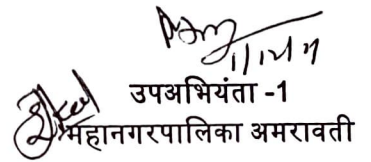 उपअभियंता -1
महानगरपालिका अमरावती